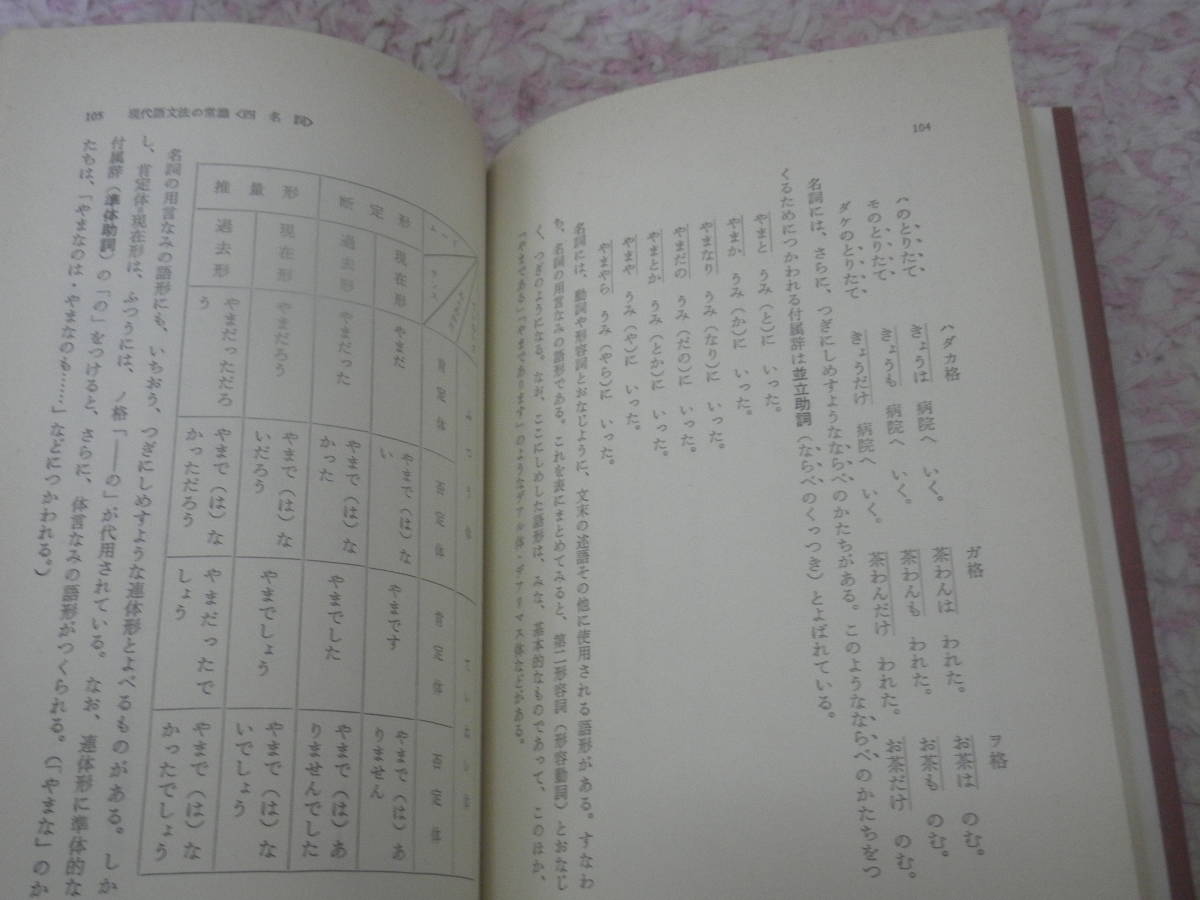 104
ハダカ格
ガ格
ヲ格
ハのとりたて
きょうは 病院へ いく。
茶わんは われた。
お茶は のむ。
モのとりたて
きょうも 病院へ いく。
茶わんも われた。
お茶も のむ。
ダケのとりたて
きょうだけ 病院へ いく。
茶わんだけ われた。
お茶だけ のむ。
名詞には、さらに、つぎにしめすようなならべのかたちがある。このようなならべのかたちをつ
くるためにつかわれる付属辞は並立助詞（ならべのくっつき）とよばれている。
やまと うみ（と）に いった。
やまか うみ（か）に いった。
やまなり うみ（なり）に いった。
やまだの うみ（だの）に いった。
やまとか うみ（とか）に いった。
やまや うみ（や）に いった。
やまやら うみ（やら）に いった。
名詞には、動詞や形容詞とおなじように、文末の述語その他に使用される語形がある。すなわ
ち、名詞の用言なみの語形である。これを表にまとめてみると、第二形容詞（形容動詞）とおなじ
く、つぎのようになる。なお、ここにしめした語形は、みな、基本的なものであって、このほか、
「やまである」「やまであります」のようなデアル体・デアリマス体などがある。
105 現代語文法の常識〈四 名 詞〉
ムード
テンス
ふつう体
ていねい体
肯定体
否定体
肯定体
否定体
断定形
現在形
やまだ
やまで（は）な
い
やまです
やまで（は）あ
りません
過去形
やまだった
やまで（は）な
かった
やまでした
やまで（は）あ
りませんでした
推量形
現在形
やまだろう
やまで（は）な
いだろう
やまでしょう
やまで（は）な
いでしょう
過去形
やまだっただろ
う
やまで（は）な
かっただろう
やまだったで
しょう
やまで（は）な
かったでしょう
名詞の用言なみの語形にも、いちおう、つぎにしめすような連体形とよべるものがある。しか
し、肯定体=現在形は、ふつうには、ノ格「――の」が代用されている。なお、連体形に準体的な
付属辞（準体助詞）の「の」をつけると、さらに、体言なみの語形がつくられる。（「やまな」のか
たちは、「やまなのは・やまなのも……」などにつかわれる。）